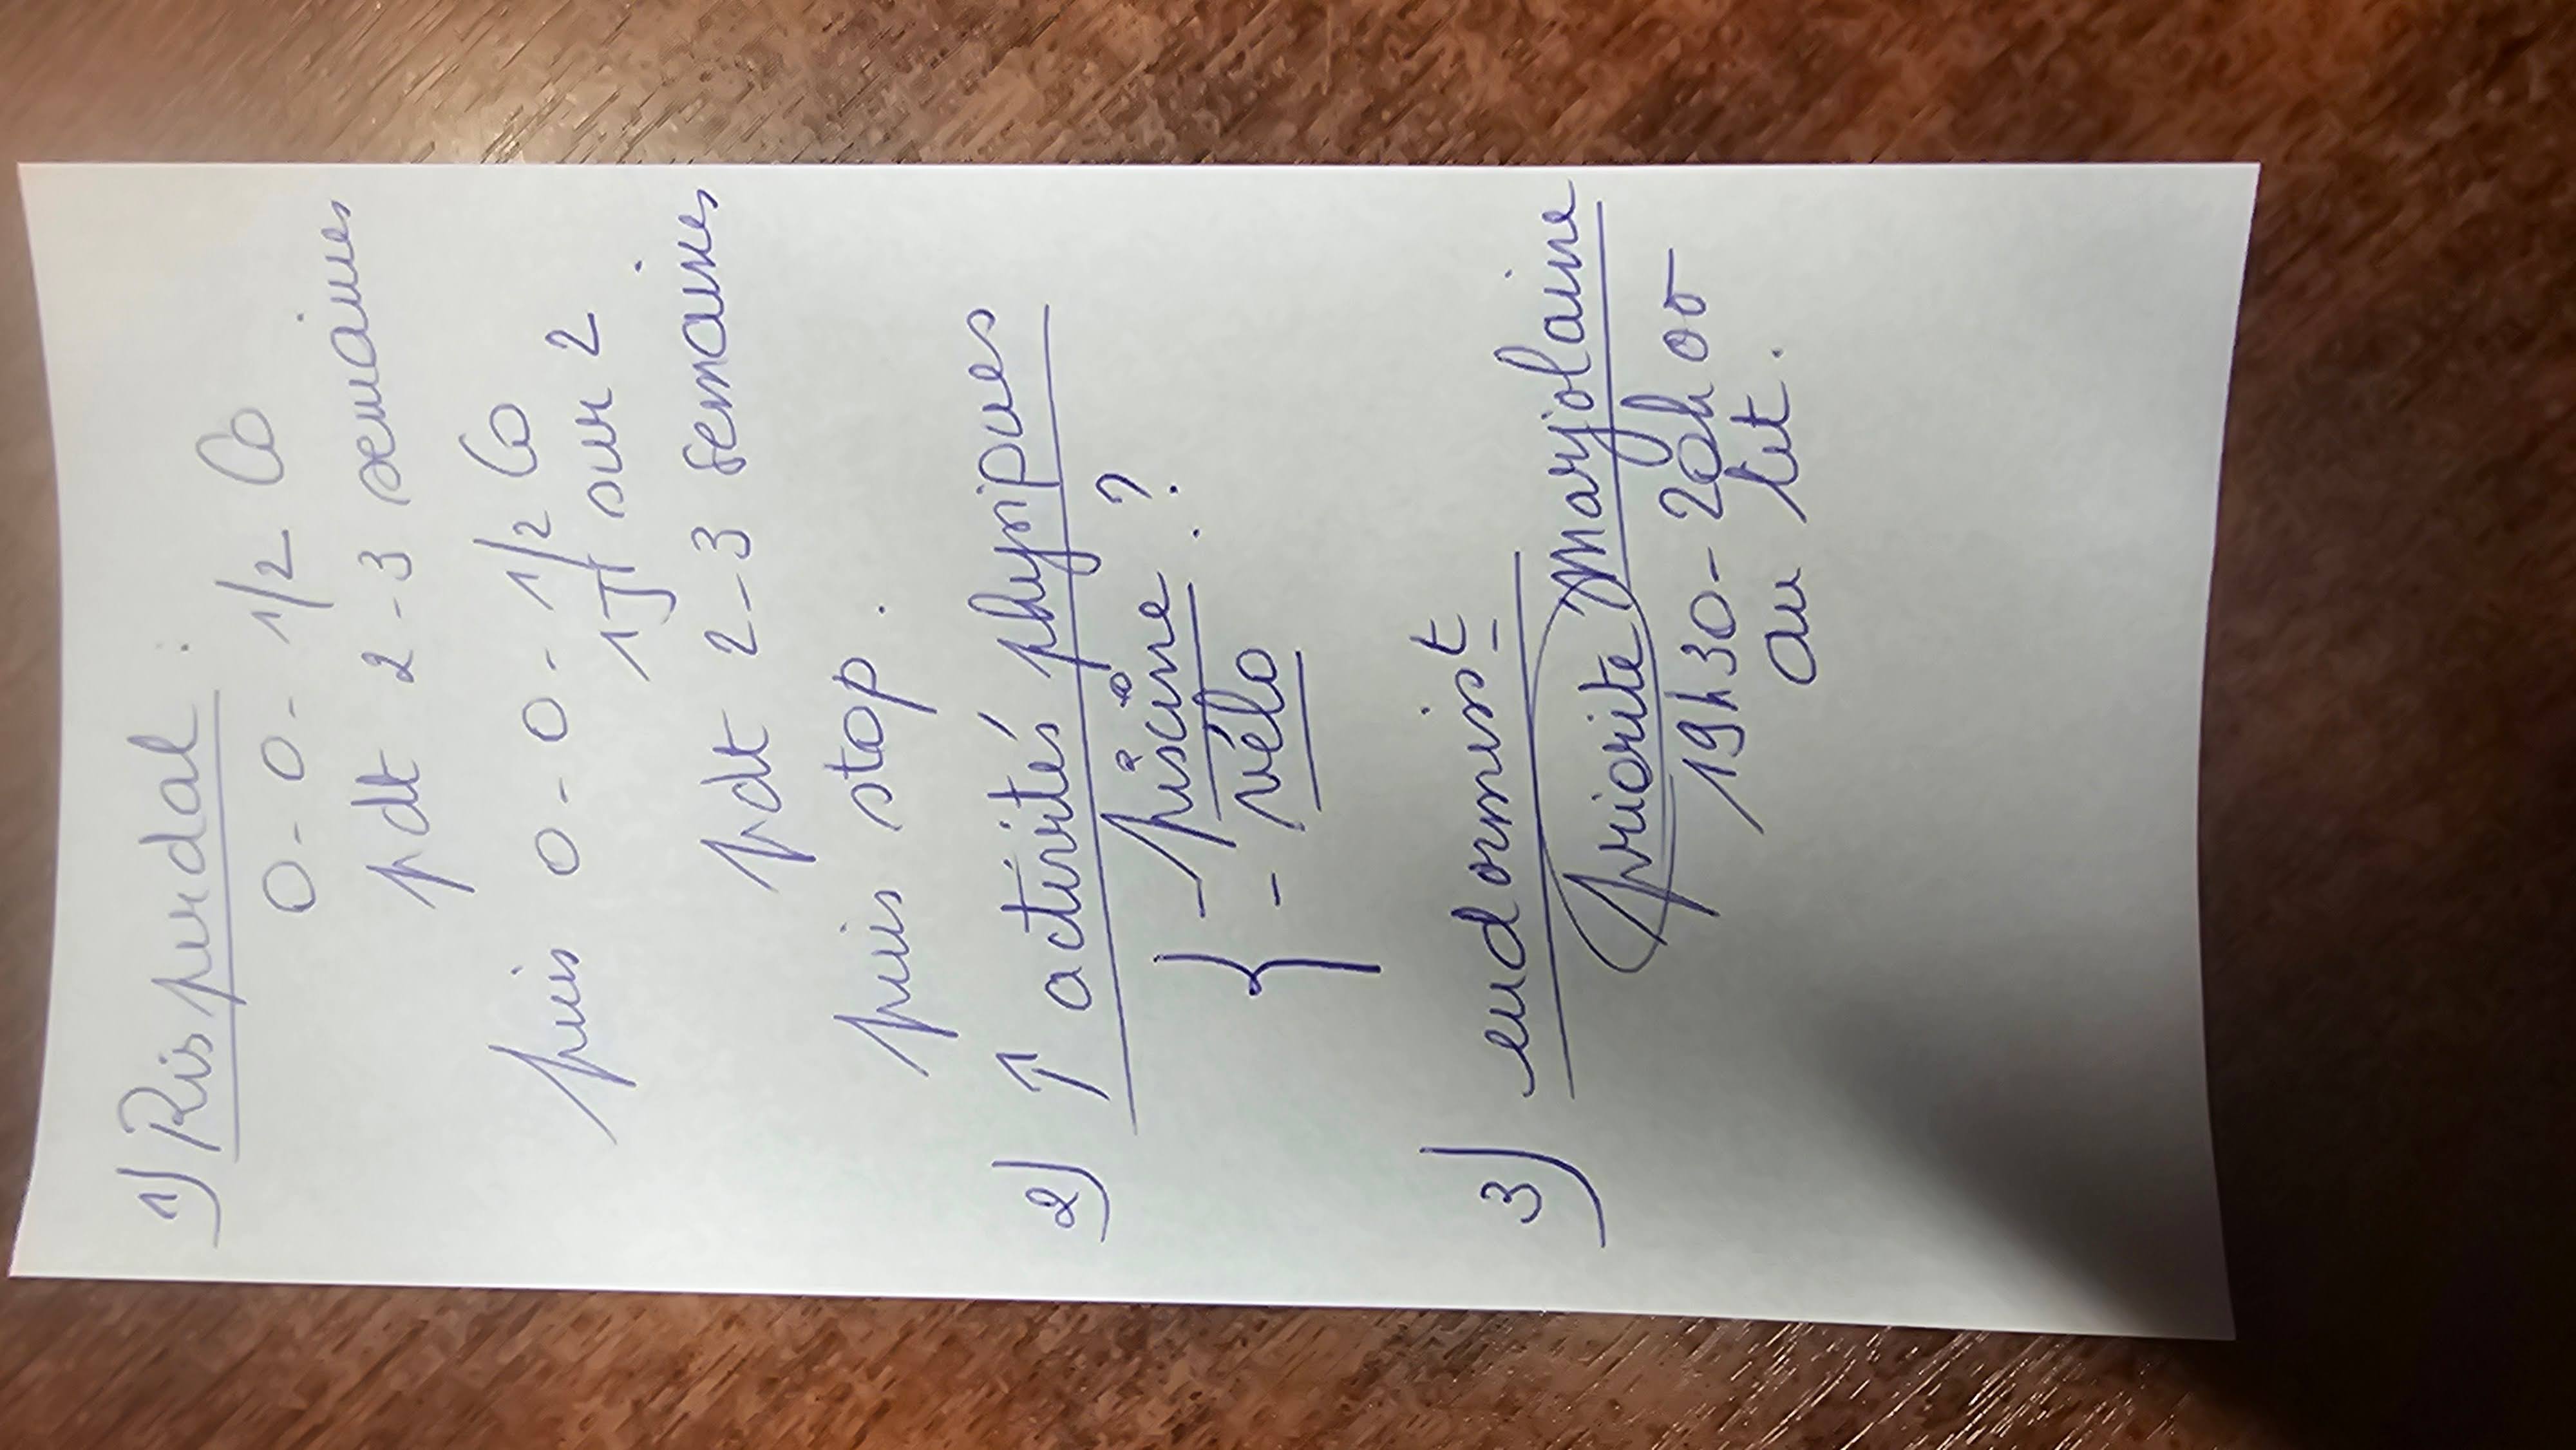 1) Rispurdal :
0-0-1/2 Co
pdt 2-3 semaines
puis 0-0-1/2 Co
1J sur 2
pdt 2-3 semaines
puis stop.
2) ↑ activités physiques
{ - piscine ?
- vélo
3) endormist
priorite marjolaine
19h30-20h00
au lit.